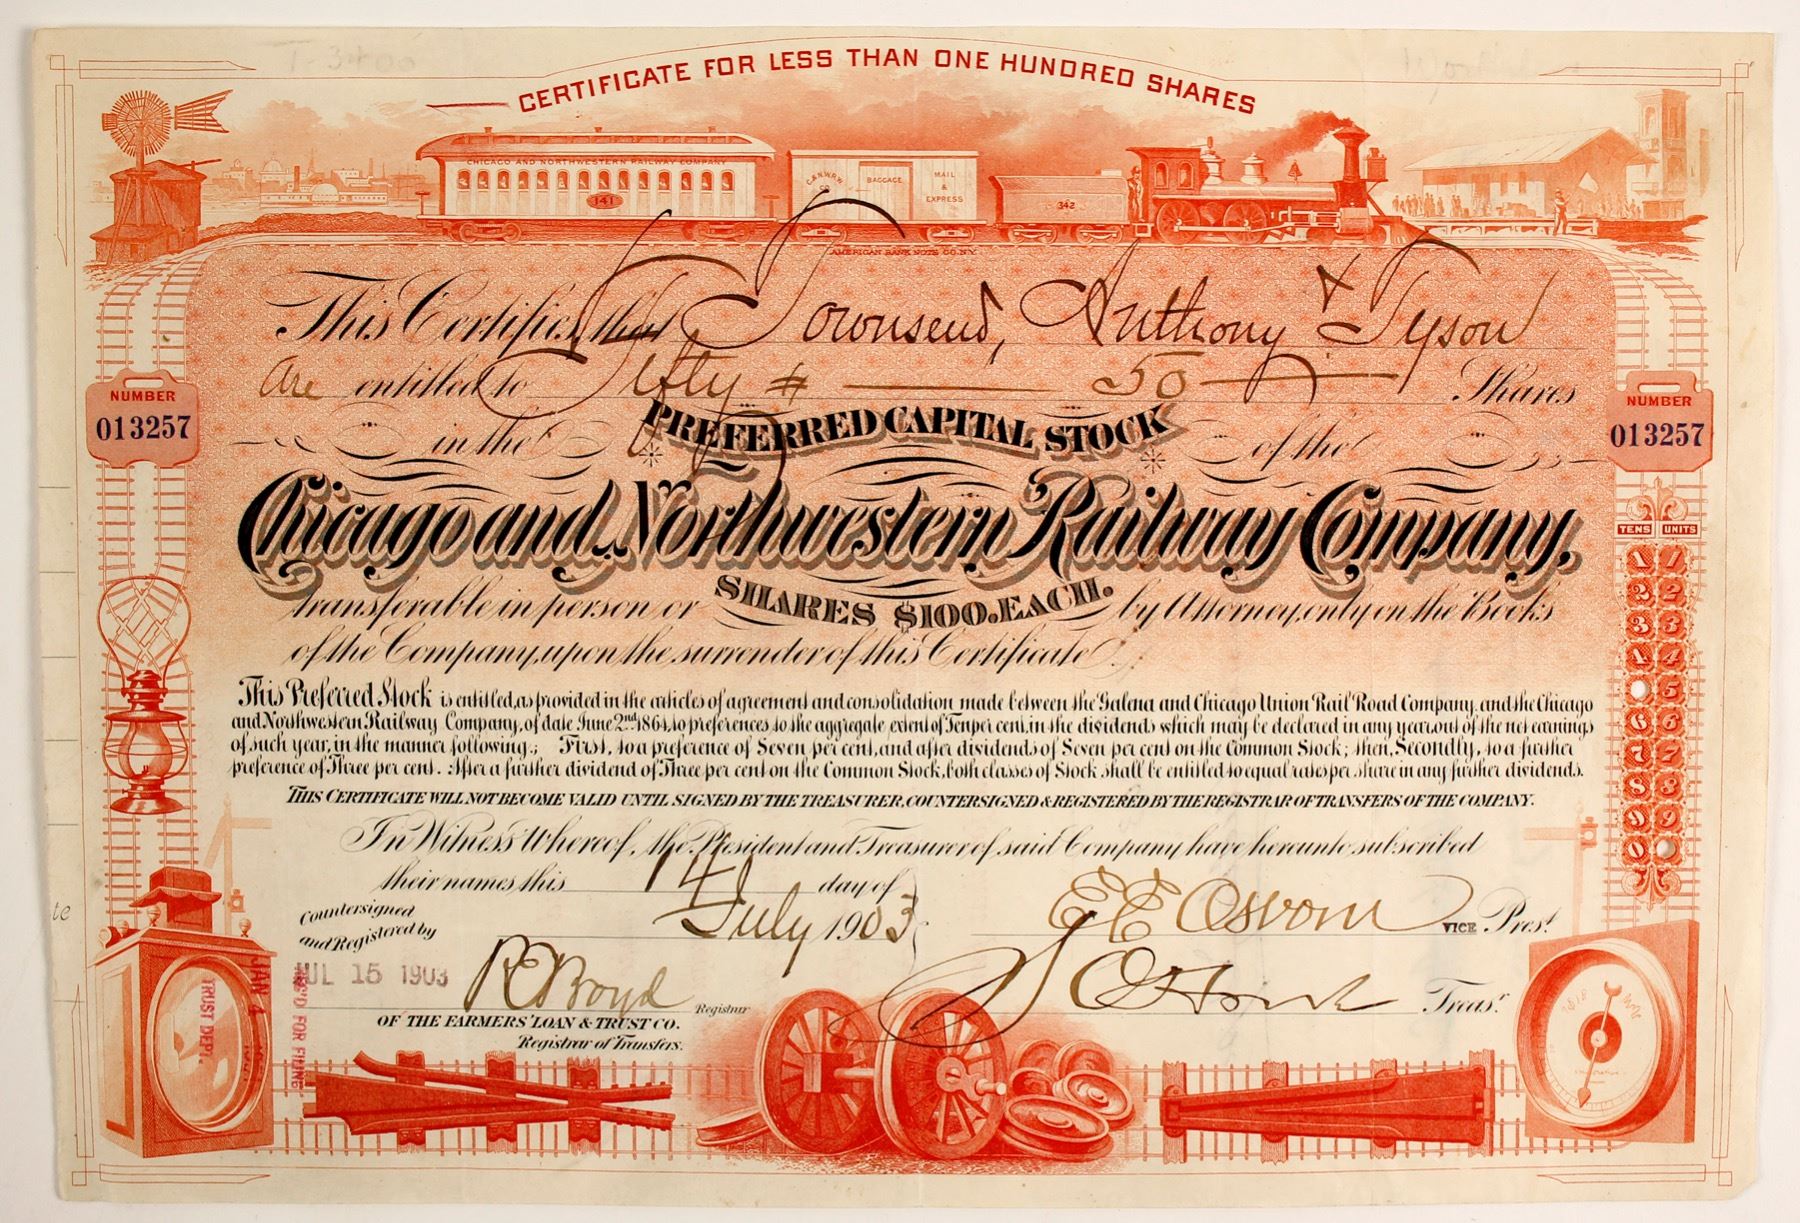 T-3400
CERTIFICATE FOR LESS THAN ONE HUNDRED SHARES
CHICAGO AND NORTHWESTERN RAILWAY COMPANY
141
C. & N.W.R.W. Co.
BAGGAGE
MAIL
&
EXPRESS
342
AMERICAN BANK NOTE CO. N.Y.
This Certifies that Townsend, Anthony & Tyson
are entitled to Fifty # 50 Shares
NUMBER
013257
NUMBER
013257
in the PREFERRED CAPITAL STOCK of the
Chicago and Northwestern Railway Company,
SHARES $100. EACH.
transferable in person or by Attorney, only on the Books
of the Company, upon the surrender of this Certificate.
TENS UNITS
1 1
2 2
3 3
4 4
5
6 6
7 7
8 8
9 9
0
This Preferred Stock is entitled, as provided in the articles of agreement and consolidation made between the Galena and Chicago Union Rail Road Company, and the Chicago
and Northwestern Railway Company, of date June 2nd 1864, to preferences to the aggregate extent of Ten per cent, in the dividends which may be declared in any year, out of the net earnings
of such year, in the manner following; First, to a preference of Seven per cent, and after dividends of Seven per cent on the Common Stock; then, Secondly, to a further
preference of Three per cent. After a further dividend of Three per cent on the Common Stock, both classes of Stock shall be entitled to equal rates per share in any further dividends.
THIS CERTIFICATE WILL NOT BECOME VALID UNTIL SIGNED BY THE TREASURER, COUNTERSIGNED & REGISTERED BY THE REGISTRAR OF TRANSFERS OF THE COMPANY.
In Witness Whereof, the President and Treasurer of said Company have hereunto subscribed
their names this 14 day of
July 1903
te
Countersigned
and Registered by
JUL 15 1903
R E Boyd Registrar
OF THE FARMERS' LOAN & TRUST CO.
Registrar of Transfers.
E E Osborn VICE Prest.
Treasr.
JAN 4
TRUST DEPT.
REC'D FOR FILING